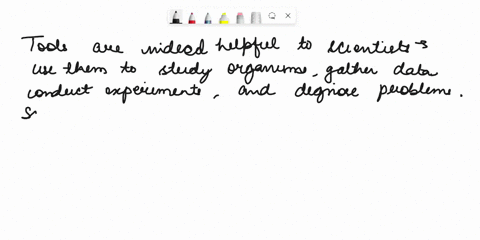 Tools are indeed helpful to scientists
use them to study organisms, gather data
conduct experiments, and degnose problems.
S